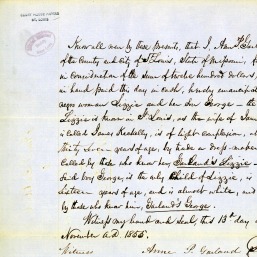 Know all men by these presents, that I, Ann P. Garland
of the County and City of St Louis, State of Missouri, for
in consideration of the sum of twelve hundred dollars,
in hand paid this day in cash, hereby emancipate
negro woman Lizzie and her son George – the
Lizzie is known in St Louis, as the wife of James
is called James Keckelly, is of light complexion, ab
thirty seven years of age, by trade a dress-maker
called by those who know her Garland's Lizzie –
said boy, George, is the only child of Lizzie, is
sixteen years of age, and is almost white, and
by those who know him, Garland's George.
Witness my hand and seal, this 13th d
November A.D. 1855.
Witness Anne P. Garland